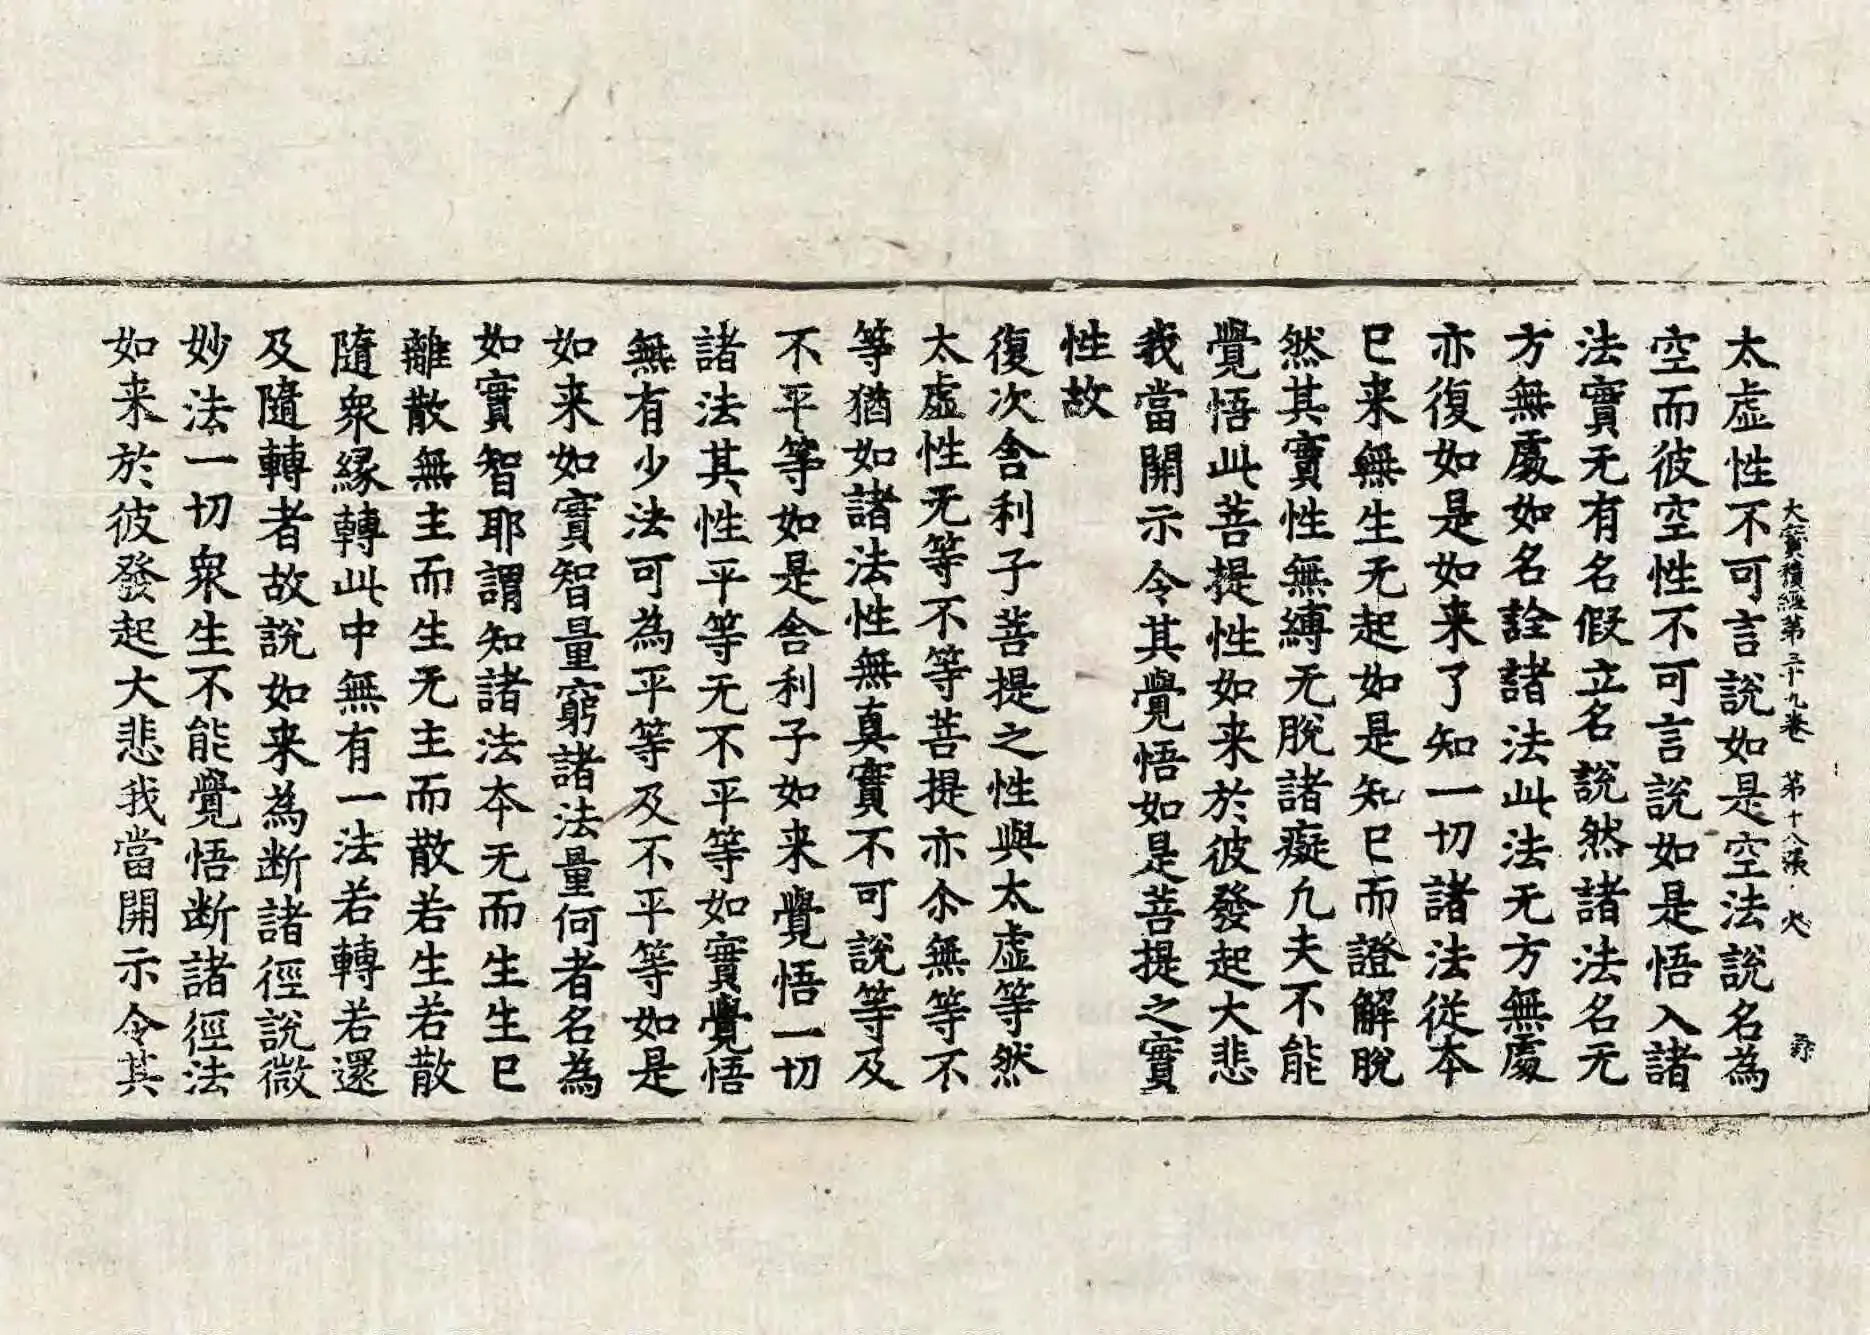 大寶積經第三十九卷 第十八張 火
太虛性不可言說如是空法說名為
空而彼空性不可言說如是悟入諸
法實无有名假立名說然諸法名无
方無處如名詮諸法此法无方無處
亦復如是如来了知一切諸法從本
已来無生无起如是知已而證解脫
然其實性無縛无脫諸癡凡夫不能
覺悟此菩提性如来於彼發起大悲
我當開示令其覺悟如是菩提之實
性故
復次舍利子菩提之性與太虛等然
太虛性无等不等菩提亦尒無等不
等猶如諸法性無真實不可說等及
不平等如是舍利子如来覺悟一切
諸法其性平等无不平等如實覺悟
無有少法可為平等及不平等如是
如来如實智量窮諸法量何者名為
如實智耶謂知諸法本无而生生已
離散無主而生无主而散若生若散
隨衆緣轉此中無有一法若轉若還
及隨轉者故說如来為断諸徑說微
妙法一切衆生不能覺悟断諸徑法
如来於彼發起大悲我當開示令其